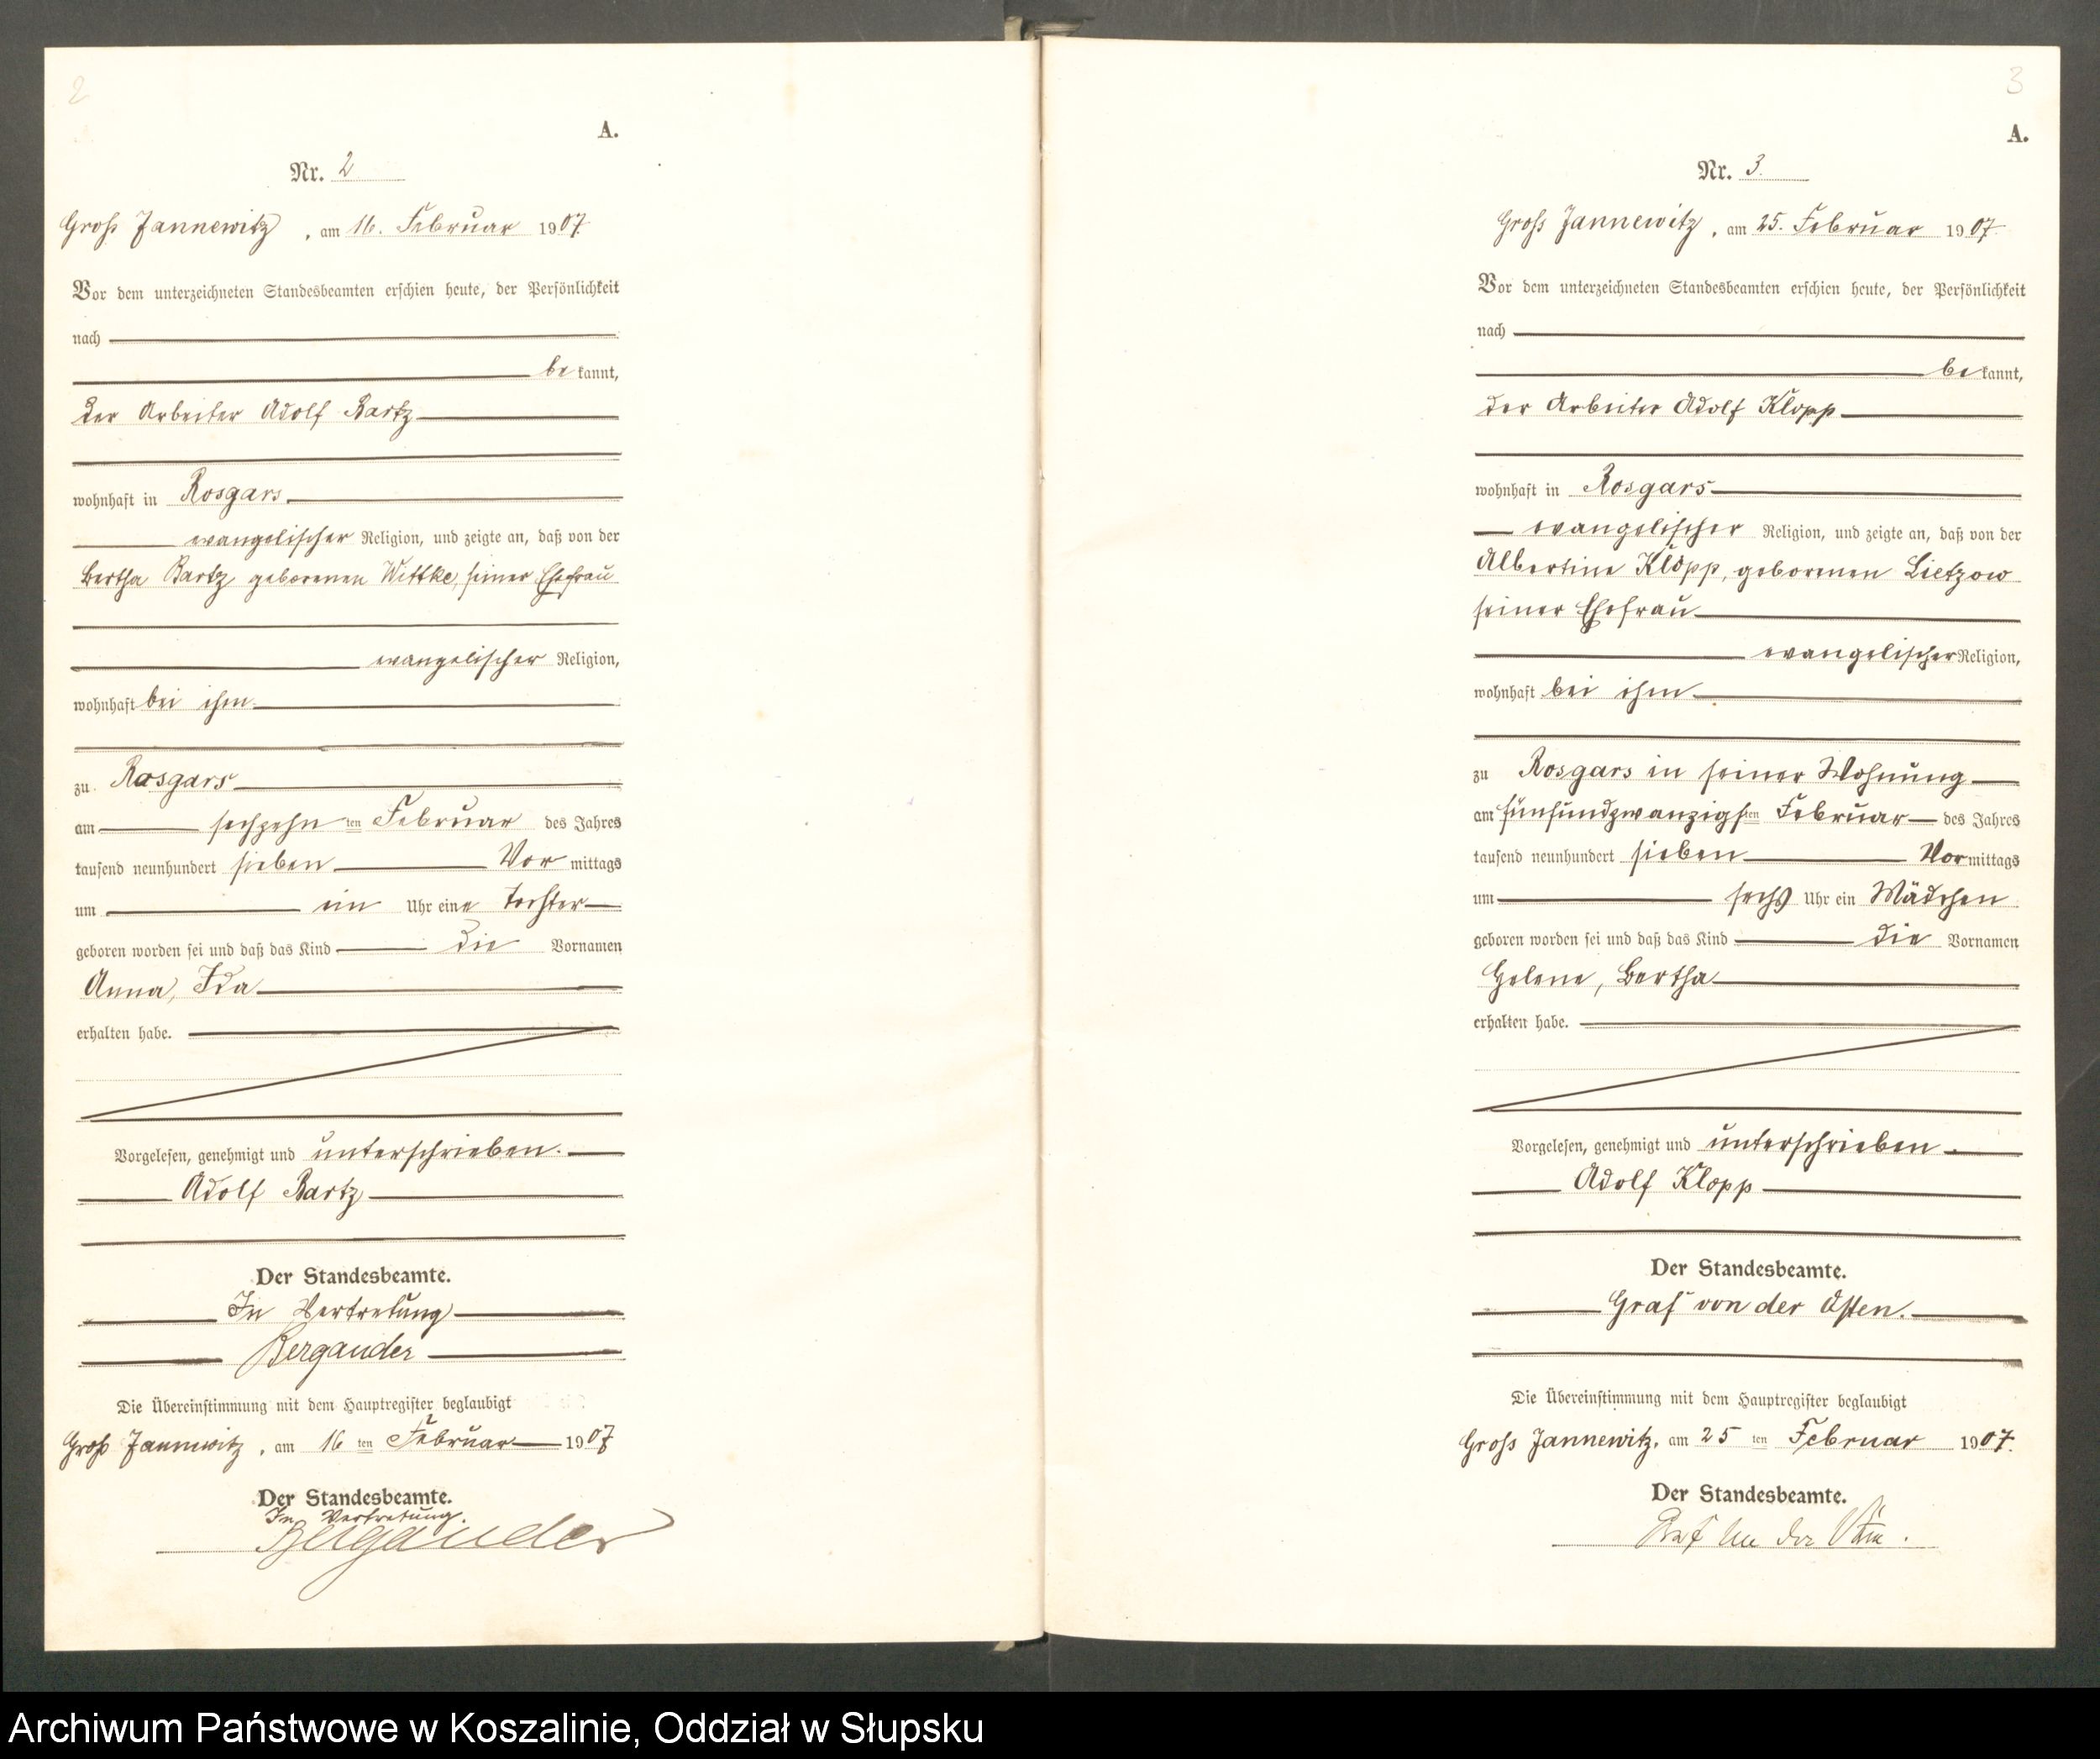 2
A.
Nr. 2
Groß Jannewitz, am 16. Februar 1907.
Vor dem unterzeichneten Standesbeamten erschien heute, der Persönlichkeit
nach
bekannt,
der Arbeiter Adolf Bartz
wohnhaft in Rosgars
evangelischer Religion, und zeigte an, daß von der
Bertha Bartz geborenen Wittke, seiner Ehefrau
evangelischer Religion,
wohnhaft bei ihm
zu Rosgars
am sechzehnten Februar des Jahres
tausend neunhundert sieben Vormittags
um ein Uhr eine Tochter
geboren worden sei und daß das Kind die Vornamen
Anna, Ida
erhalten habe.
Vorgelesen, genehmigt und unterschrieben.
Adolf Bartz
Der Standesbeamte.
In Vertretung
Bergander
Die Übereinstimmung mit dem Hauptregister beglaubigt
Groß Jannewitz, am 16ten Februar 1907
Der Standesbeamte.
In Vertretung.
Bergander
3
A.
Nr. 3.
Groß Jannewitz, am 25. Februar 1907.
Vor dem unterzeichneten Standesbeamten erschien heute, der Persönlichkeit
nach
bekannt,
der Arbeiter Adolf Klopp
wohnhaft in Rosgars
evangelischer Religion, und zeigte an, daß von der
Albertine Klopp, geborenen Lietzow
seiner Ehefrau
evangelischer Religion,
wohnhaft bei ihm
zu Rosgars in seiner Wohnung
am fünfundzwanzigsten Februar des Jahres
tausend neunhundert sieben Vormittags
um sechs Uhr ein Mädchen
geboren worden sei und daß das Kind die Vornamen
Helene, Bertha
erhalten habe.
Vorgelesen, genehmigt und unterschrieben.
Adolf Klopp
Der Standesbeamte.
Graf von der Osten.
Die Übereinstimmung mit dem Hauptregister beglaubigt
Groß Jannewitz, am 25ten Februar 1907.
Der Standesbeamte.
Graf von der Osten.
Archiwum Państwowe w Koszalinie, Oddział w Słupsku